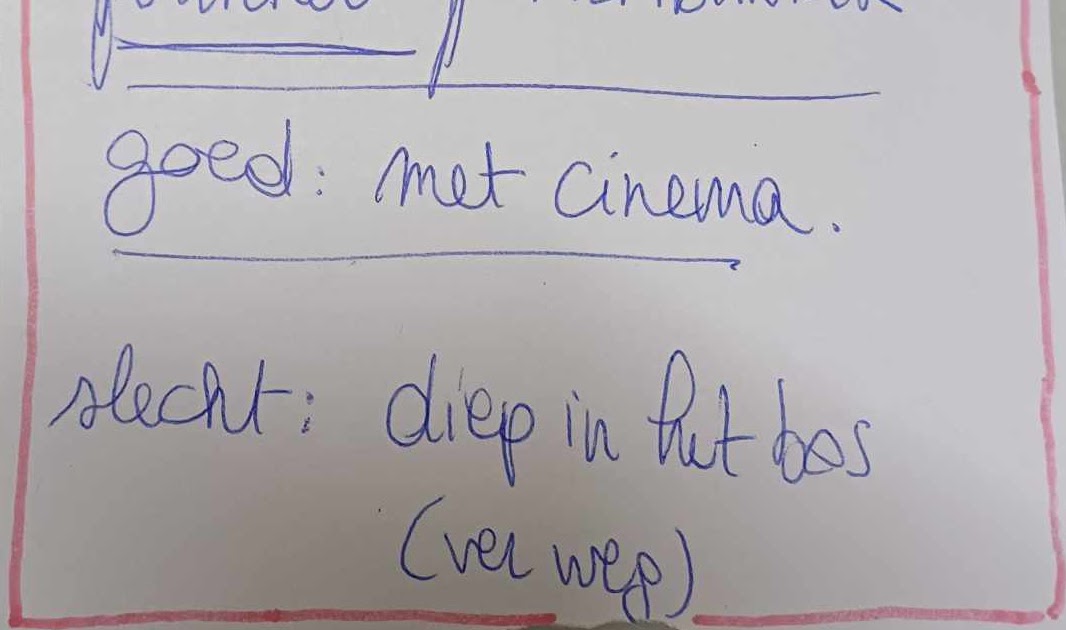 goed: met cinema.
slecht: diep in het bos
(ver weg)